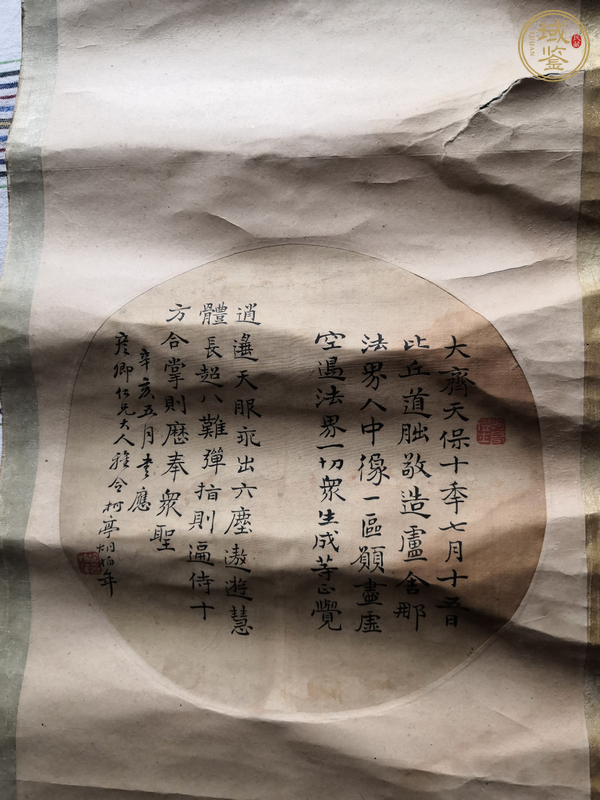 大齊天保十年七月十五日
比丘道朏敬造盧舍那
法界人中像一區願盡虛
空遍法界一切眾生成等正覺
逍遙天服乘出六塵遨遊慧
體長超八難彈指則遍侍十
方合掌則歷奉眾聖
辛亥五月書應
彥卿仁兄大人雅令柯亭
域鑒